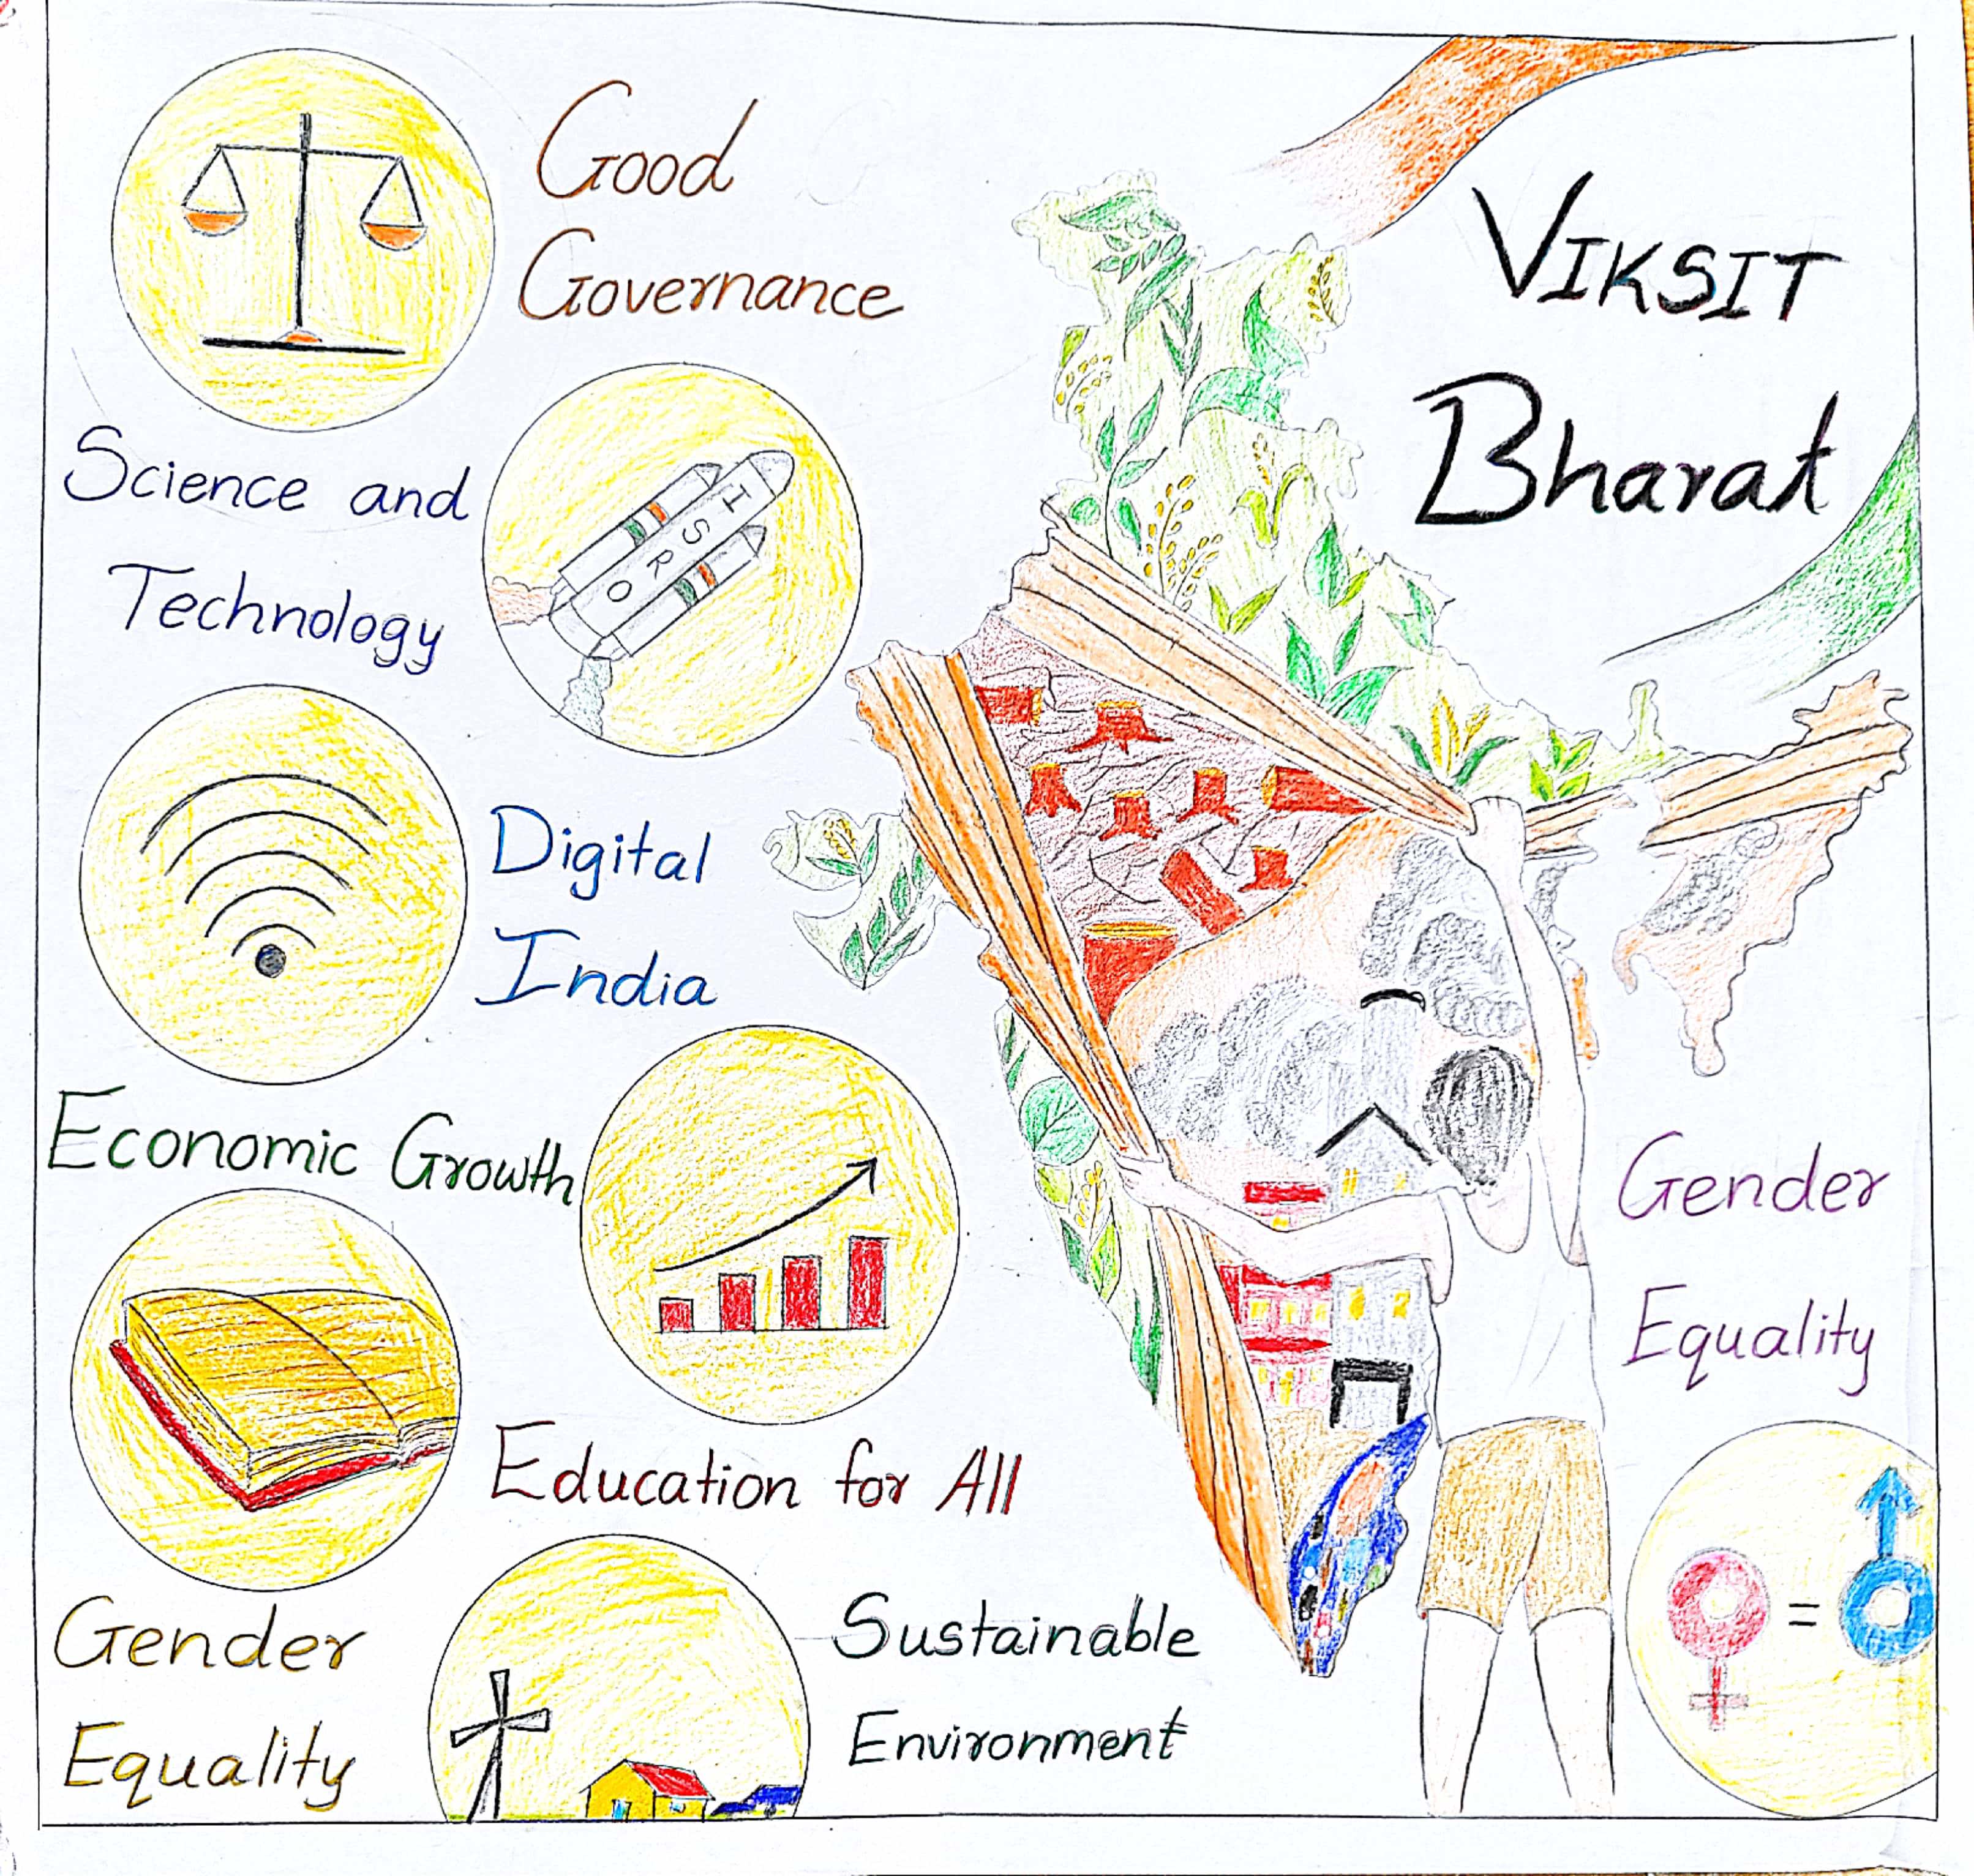 Good
Governance
VIKSIT
Bharat
Science and
Technology
ISRO
Digital
India
Economic Growth
Gender
Equality
Education for All
Gender
Equality
=
Sustainable
Environment